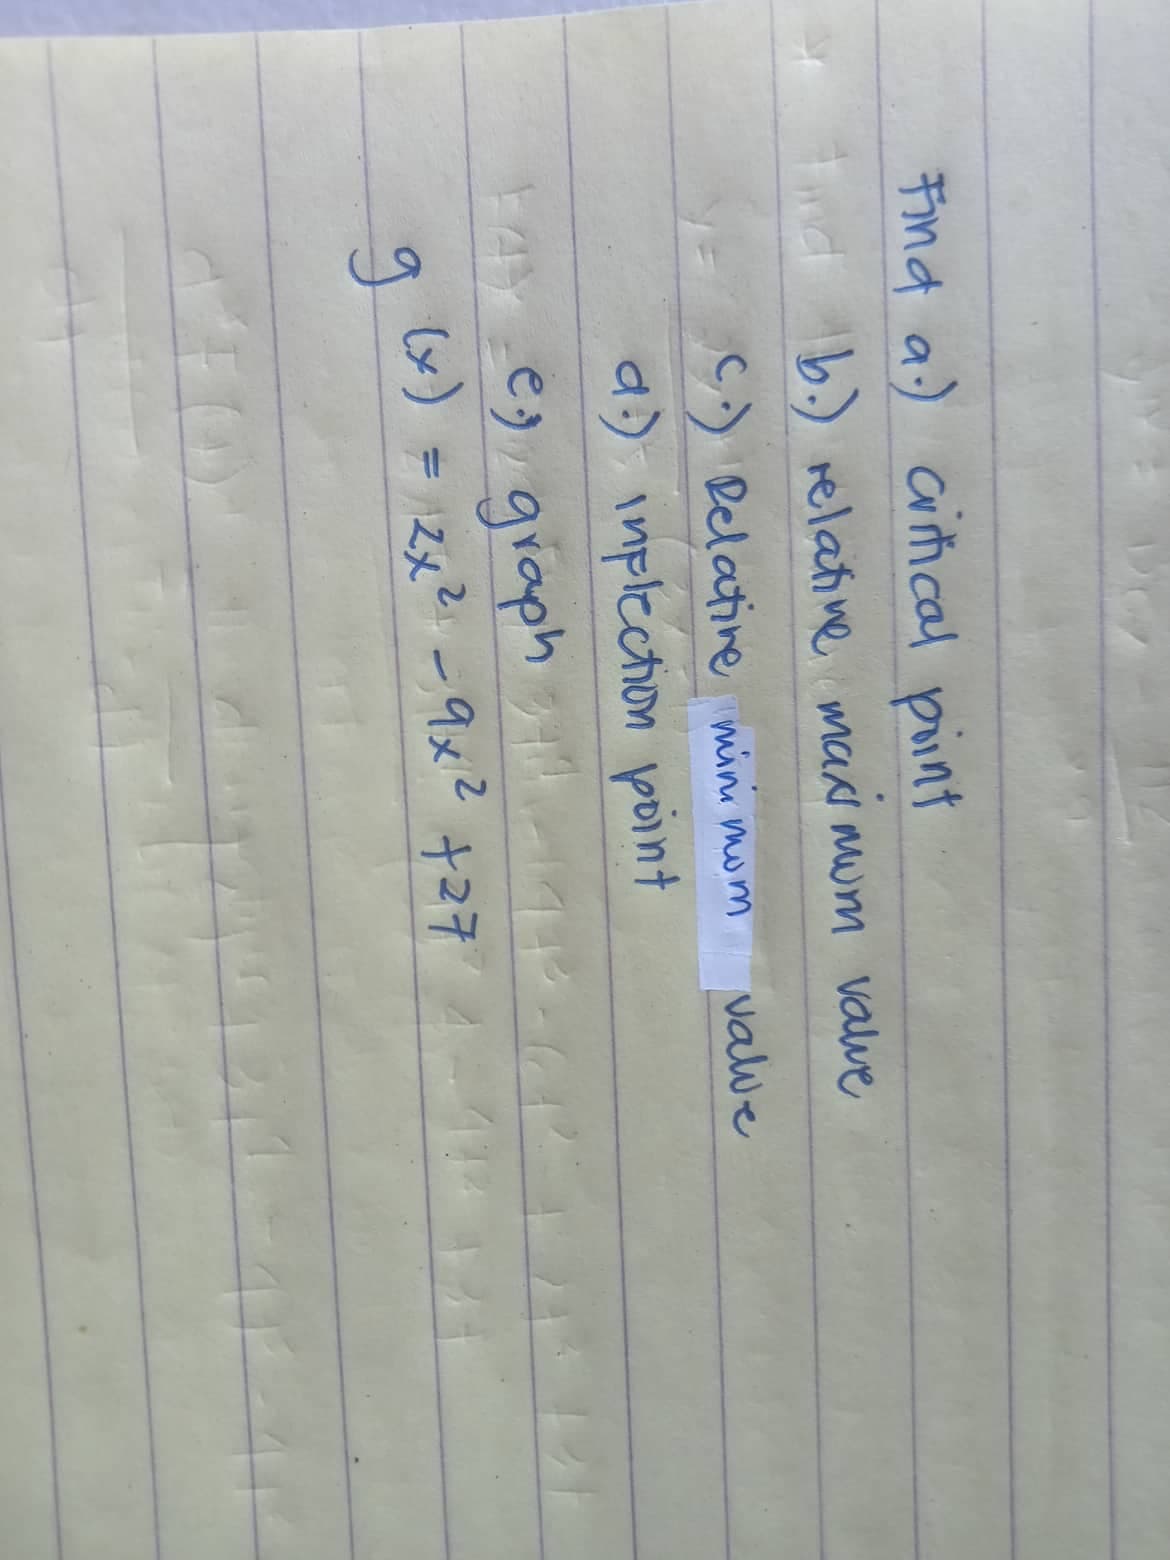 Find a.) critical point
b.) relative maximum value
c.) Relative minimum value
d.) inflection point
e.) graph
g (x) = 2x² - 9x² + 27